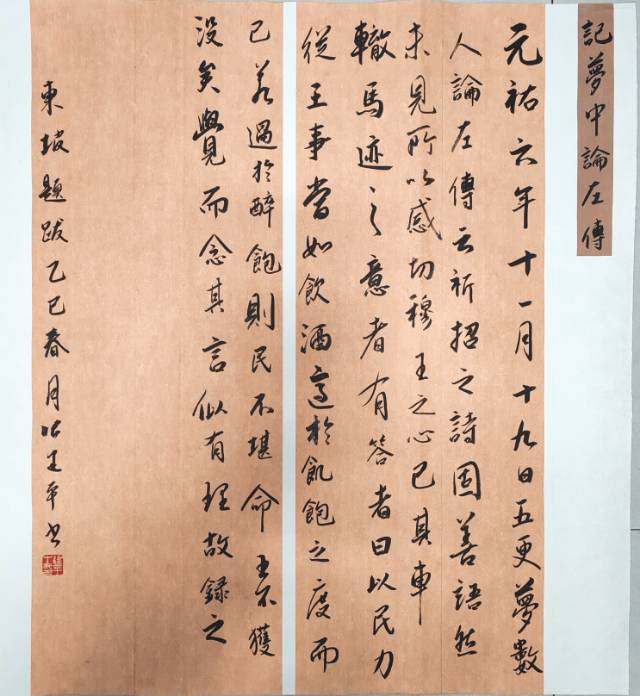 記夢中論左傳
元祐六年十一月十九日五更夢數
人論左傳云祈招之詩固善語然
未見所以感切穆王之心已其車
轍馬迹之意者有答者曰以民力
從王事當如飲酒適於飢飽之度而
已若過於醉飽則民不堪命王不獲
没矣覺而念其言似有理故録之
東坡題跋乙巳春月
王平書